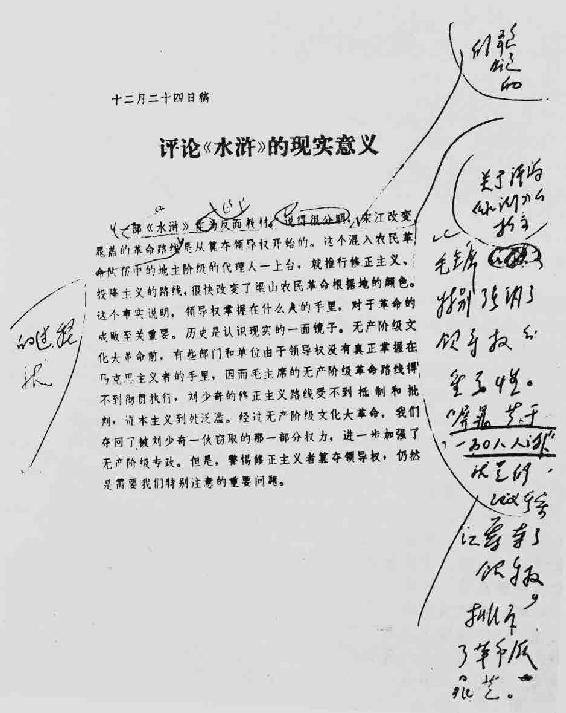 十二月二十四日稿
评论《水浒》的现实意义
一部《水浒》是为反面教材，说得很分明，宋江改变
晁盖的革命路线是从篡夺领导权开始的。这个混入农民革
命队伍中的地主阶级的代理人一上台，就推行修正主义、
投降主义的路线，很快改变了梁山农民革命根据地的颜色。
这个事实说明，领导权掌握在什么人的手里，对于革命的
成败至关重要。历史是认识现实的一面镜子。无产阶级文
化大革命前，有些部门和单位由于领导权没有真正掌握在
马克思主义者的手里，因而毛主席的无产阶级革命路线得
不到彻底执行，刘少奇的修正主义路线受不到抵制和批
判，资本主义到处泛滥。经过无产阶级文化大革命，我们
夺回了被刘少奇一伙窃取的那一部分权力，进一步加强了
无产阶级专政。但是，警惕修正主义者篡夺领导权，仍然
是需要我们特别注意的重要问题。
的
关于评论
《水浒》的
指示
毛主席
特别强调了
领导权的
重要性。
“屏晁盖于
一百〇八人之外”
江篡夺了
领导权
了革命
晁盖。
的过程